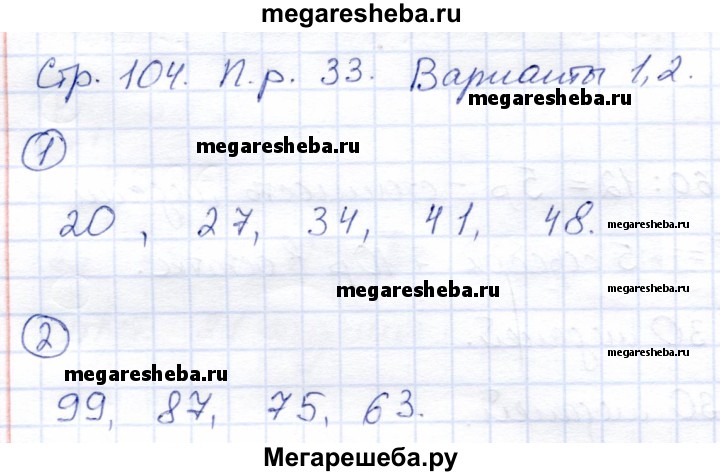 megaresheba.ru
Стр. 104. П.р. 33. Варианты 1,2.
megaresheba.ru
1 megaresheba.ru
20, 27, 34, 41, 48.
megaresheba.ru
megaresheba.ru
2
megaresheba.ru
megaresheba.ru
99, 87, 75, 63.
megaresheba.ru
Мегарешеба.ру